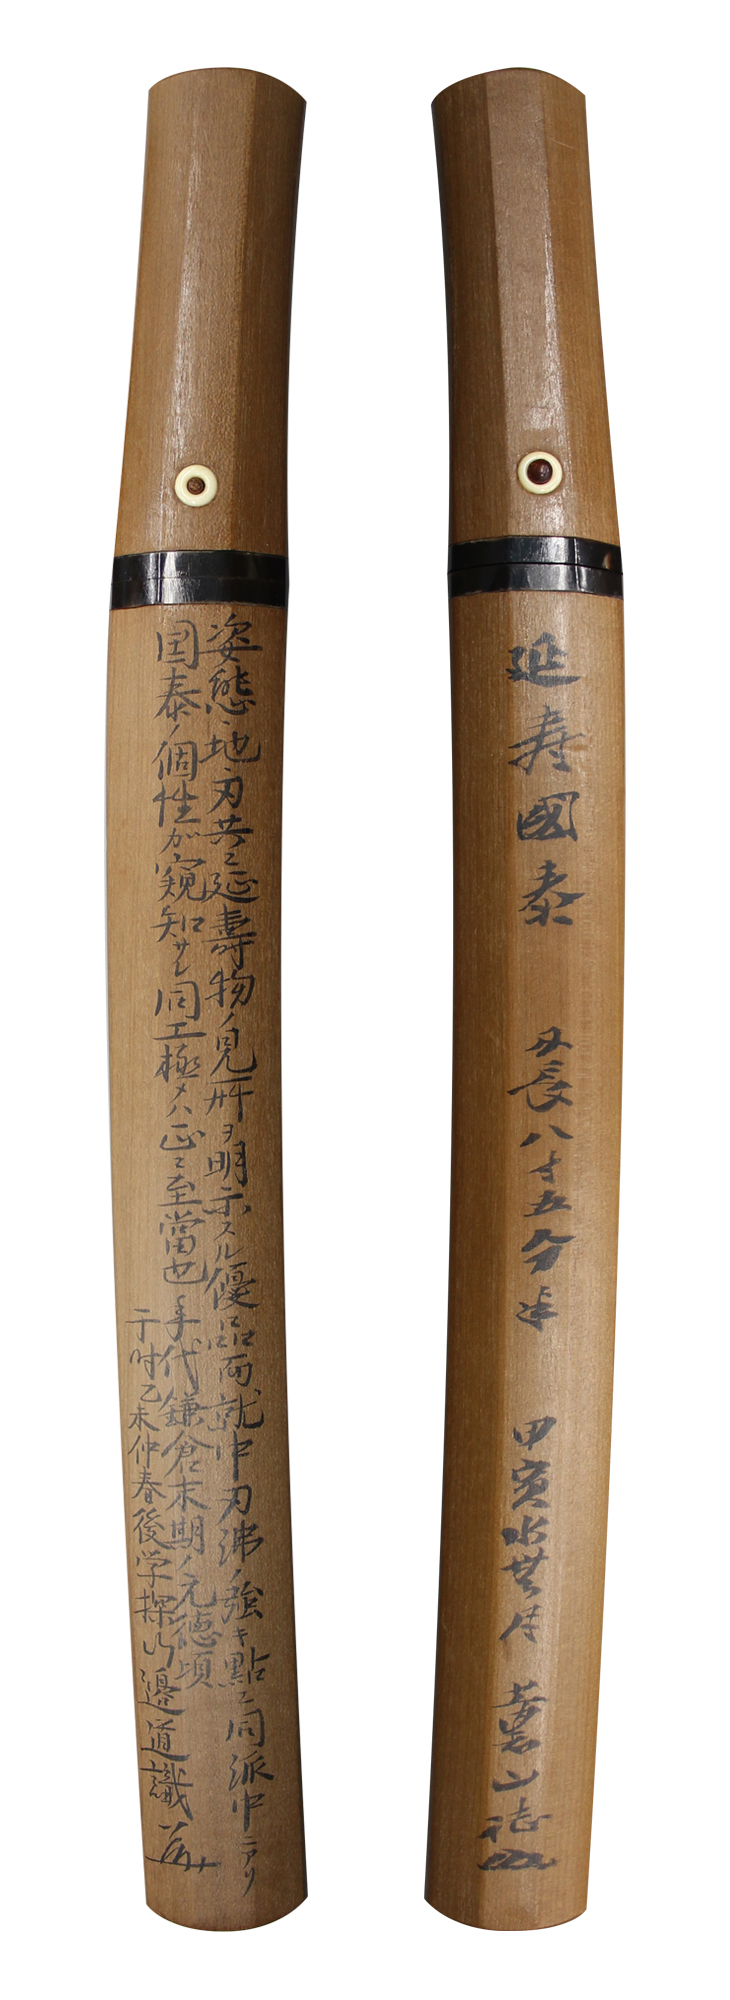 延寿國泰 刃長八寸五分半 甲寅水無月 薫山誌
姿態、地、刃共ニ延壽物ノ見所ヲ明示スル優品而就中刃沸ノ強キ點ニ同派中ニアリ
国泰ノ個性が窺知サレ同工極メハ正ニ至當也 年代鎌倉末期ノ元徳頃
于时乙未仲春後学探山邉道識